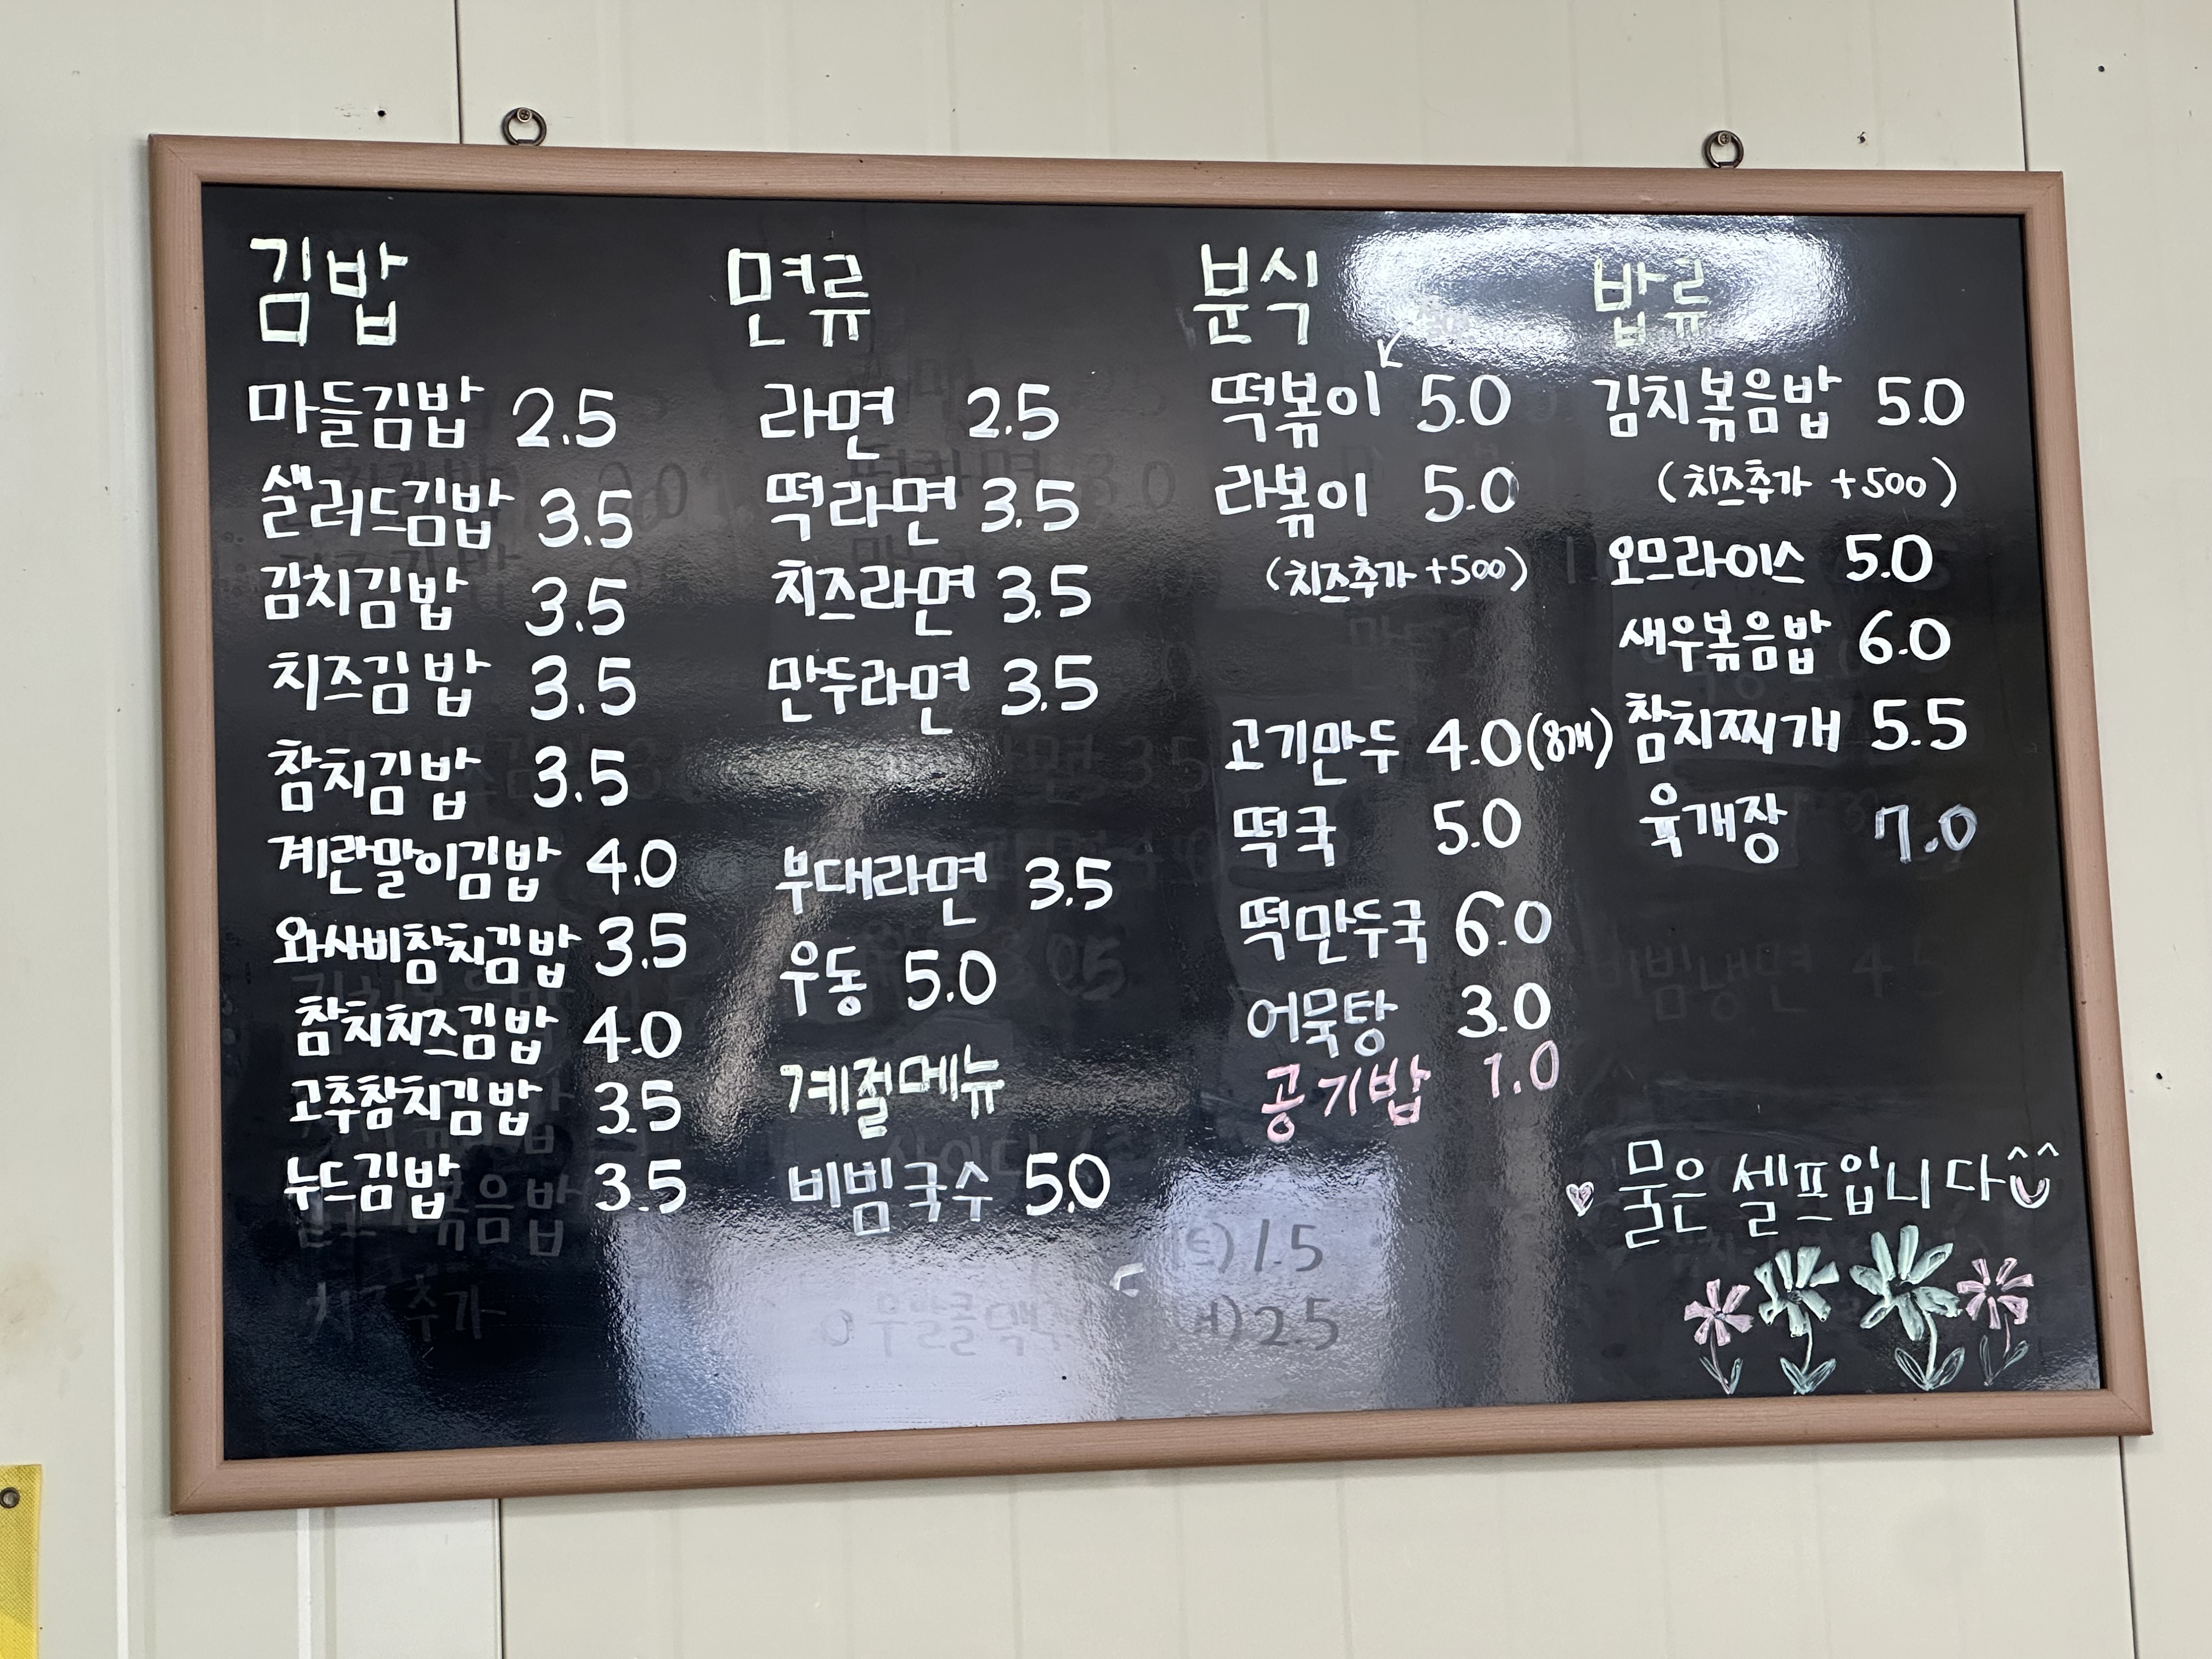 김밥
마들김밥 2.5
샐러드김밥 3.5
김치김밥 3.5
치즈김밥 3.5
참치김밥 3.5
계란말이김밥 4.0
와사비참치김밥 3.5
참치치즈김밥 4.0
고추참치김밥 3.5
누드김밥 3.5
면류
라면 2.5
떡라면 3.5
치즈라면 3.5
만두라면 3.5
부대라면 3.5
우동 5.0
계절메뉴
비빔국수 5.0
분식
떡볶이 5.0
라볶이 5.0
(치즈추가 +500)
고기만두 4.0(8개)
떡국 5.0
떡만두국 6.0
어묵탕 3.0
공기밥 1.0
밥류
김치볶음밥 5.0
(치즈추가 +500)
오므라이스 5.0
새우볶음밥 6.0
참치찌개 5.5
육개장 7.0
물은 셀프입니다